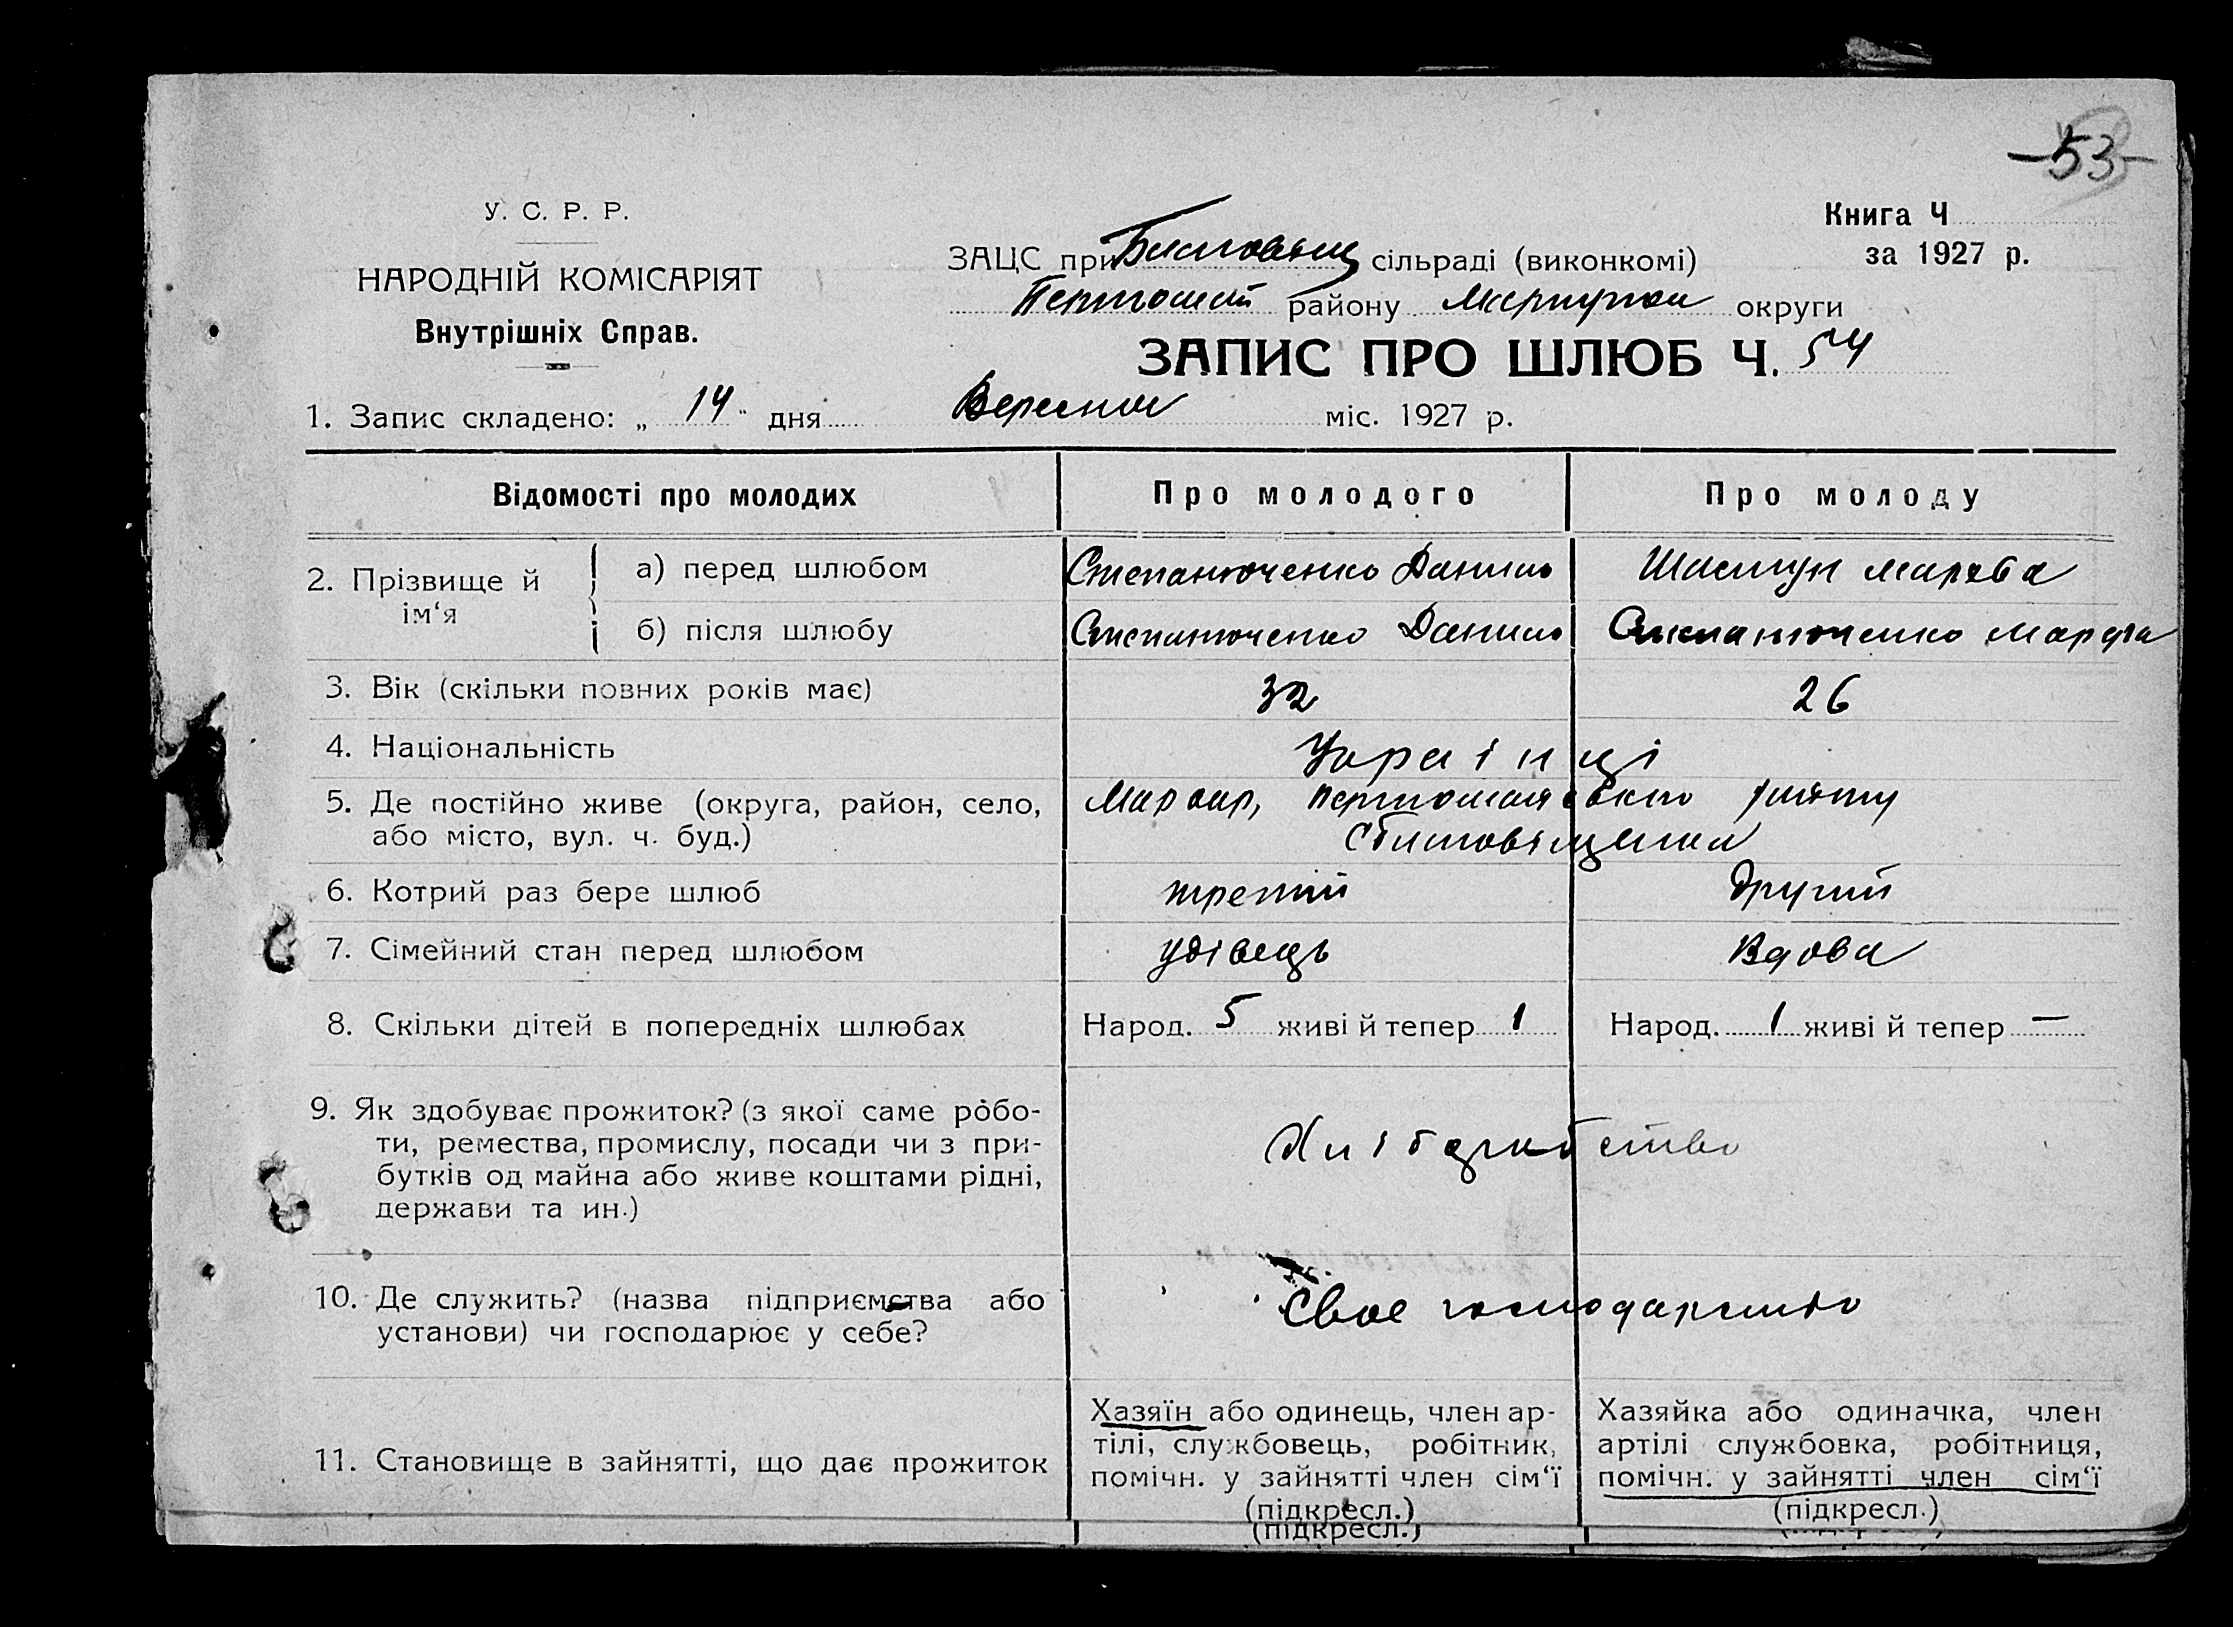 -53-
У. С. Р. Р.
НАРОДНІЙ КОМІСАРІЯТ
Внутрішніх Справ.
Книга Ч
за 1927 р.
ЗАЦС при сільраді (виконкомі)
району округи
ЗАПИС ПРО ШЛЮБ Ч. 54
1. Запис складено: „ 14 " дня Вересня міс. 1927 р.
Відомості про молодих Про молодого Про молоду
2. Прізвище й ім‘я
а) перед шлюбом Степанюченко Данило
б) після шлюбу Степанюченко Данило Степанюченко
3. Вік (скільки повних років має) 32 26
4. Національність Українці
5. Де постійно живе (округа, район, село,
або місто, вул. ч. буд.)
6. Котрий раз бере шлюб третій другий
7. Сімейний стан перед шлюбом удівець Вдова
8. Скільки дітей в попередніх шлюбах Народ. 5 живі й тепер 1 Народ. 1 живі й тепер —
9. Як здобуває прожиток? (з якої саме робо-
ти, ремества, промислу, посади чи з при-
бутків од майна або живе коштами рідні,
держави та ин.)
Хліборобство
10. Де служить? (назва підприємства або
установи) чи господарює у себе?
Своє господарство
11. Становище в зайнятті, що дає прожиток
Хазяїн або одинець, член ар-
тілі, службовець, робітник,
помічн. у зайнятті член сім‘ї
(підкресл.)
(підкресл.)
Хазяйка або одиначка, член
артілі службовка, робітниця,
помічн. у зайнятті член сім‘ї
(підкресл.)